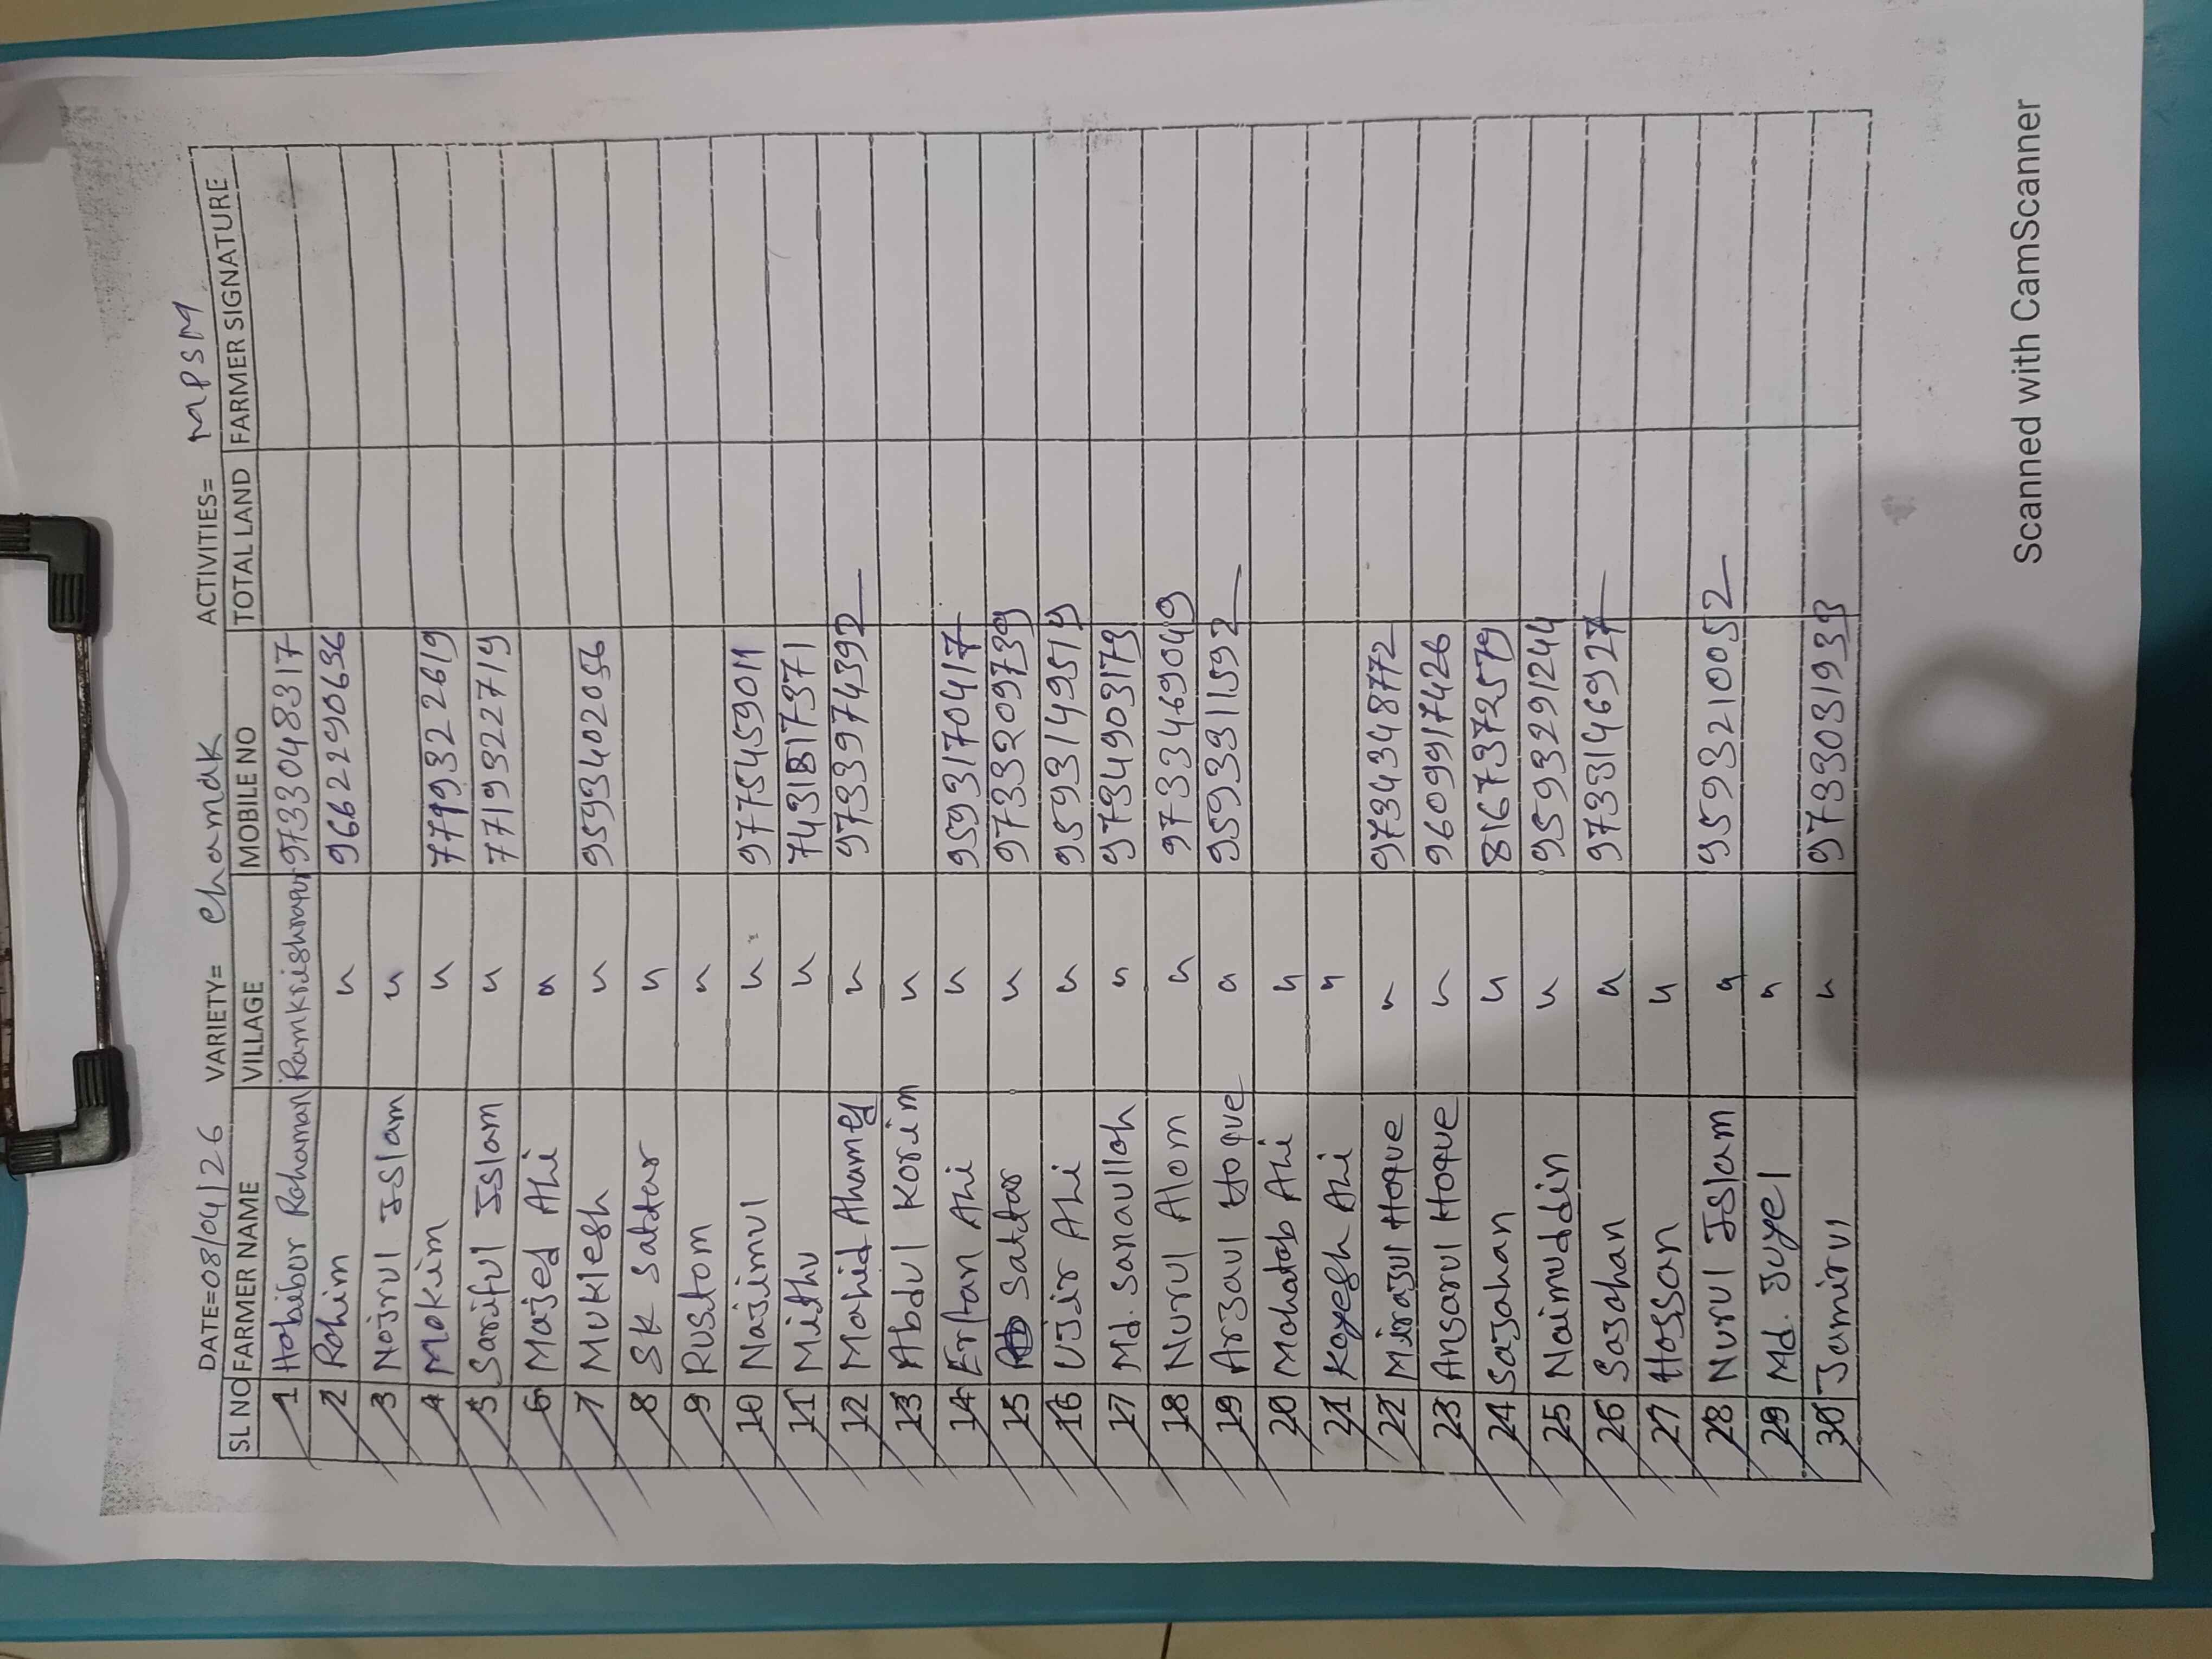 DATE=08/04/26 VARIETY= Chamak ACTIVITIES= MPSM
SL NO FARMER NAME VILLAGE MOBILE NO TOTAL LAND FARMER SIGNATURE
1 Habibur Rohaman Ramkrishnapur 9733048317
2 Rohim " 9662290636
3 Nojrul Islam "
4 Mokim " 7719322619
5 Sariful Islam " 7719322719
6 Majed Ali "
7 Muklesh " 9593402056
8 SK Sattar "
9 Rustom "
10 Najimul " 9775459011
11 Mithu " 7431817371
12 Mohid Ahamed " 9733974392
13 Abdul Korim "
14 Erfan Ali " 9593170417
15 Sattar " 9733209739
16 Ujir Ali " 9593149519
17 Md. Sanaulloh " 9734903179
18 Nurul Alom " 9733469049
19 Arjaul Hoque " 9593311592
20 Mohatab Ali "
21 Kayesh Ali "
22 Mirajul Hoque " 9734348772
23 Ansarul Hoque " 9609917426
24 Sajahan " 8167372579
25 Naimuddin " 9593291244
26 Sajahan " 9733146927
27 Hossan "
28 Nurul Islam " 9593210052
29 Md. Juyel "
30 Jamirul " 9733031933
Scanned with CamScanner